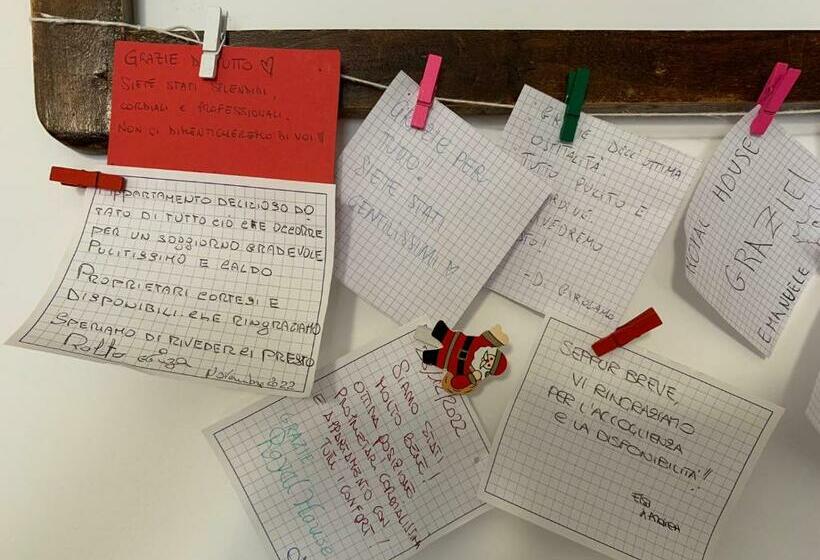 GRAZIE DI TUTTO
SIETE STATI SPLENDIDI,
CORDIALI E PROFESSIONALI.
NON CI DIMENTICHEREMO DI VOI!
APPARTAMENTO DELIZIOSO DO
TATO DI TUTTO CIÒ CHE OCCORRE
PER UN SOGGIORNO GRADEVOLE
PULITISSIMO E CALDO
PROPRIETARI CORTESI E
DISPONIBILI. CHE RINGRAZIAMO
SPERIAMO DI RIVEDERCI PRESTO
Novembre 2022
GRAZIE PER
TUTTO!!
SIETE STATI
GENTILISSIMI
GRAZIE DELL'OTTIMA
OSPITALITÀ.
TUTTO PULITO E
- D. GIROLAMO
ROYAL HOUSE
GRAZIE!
EMANUELE
2022
SIAMO STATI
MOLTO BENE!
OTTIMA POSIZIONE
PROPRIETARIA CORDIALISSIMA
E APPARTAMENTO CON
TUTTI I CONFORT!
GRAZIE
Royal House
SEPPUR BREVE,
VI RINGRAZIAMO
PER L'ACCOGLIENZA
E LA DISPONIBILITÀ!!